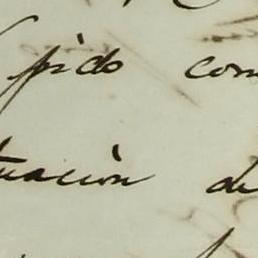 pido con
tuación de